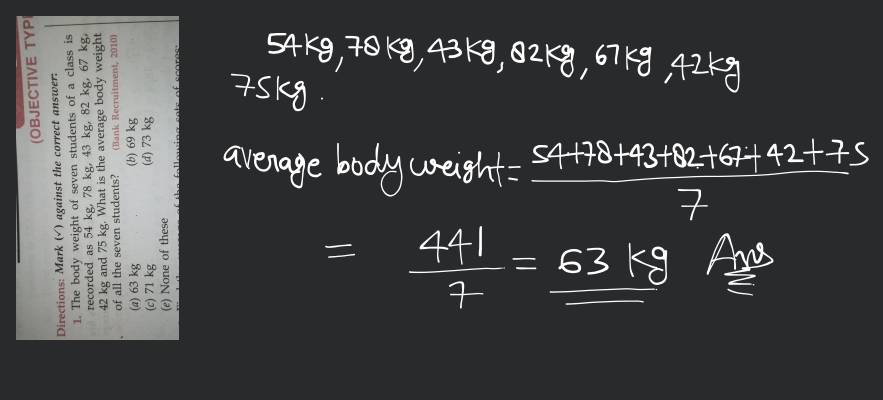 (OBJECTIVE TYP
Directions: Mark (✓) against the correct answer:
1. The body weight of seven students of a class is
recorded as 54 kg, 78 kg, 43 kg, 82 kg, 67 kg,
42 kg and 75 kg. What is the average body weight
of all the seven students? (Bank Recruitment, 2010)
(a) 63 kg (b) 69 kg
(c) 71 kg (d) 73 kg
(e) None of these
54kg, 78 kg, 43kg, 82kg, 67kg, 42kg
75kg.
average body weight = 54+78+43+82+67+42+75
7
= 441
7
= 63 kg Ans